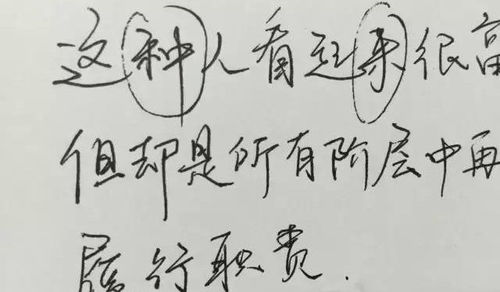 这种人看起来很富
但却是所有阶层中再
履行职费.